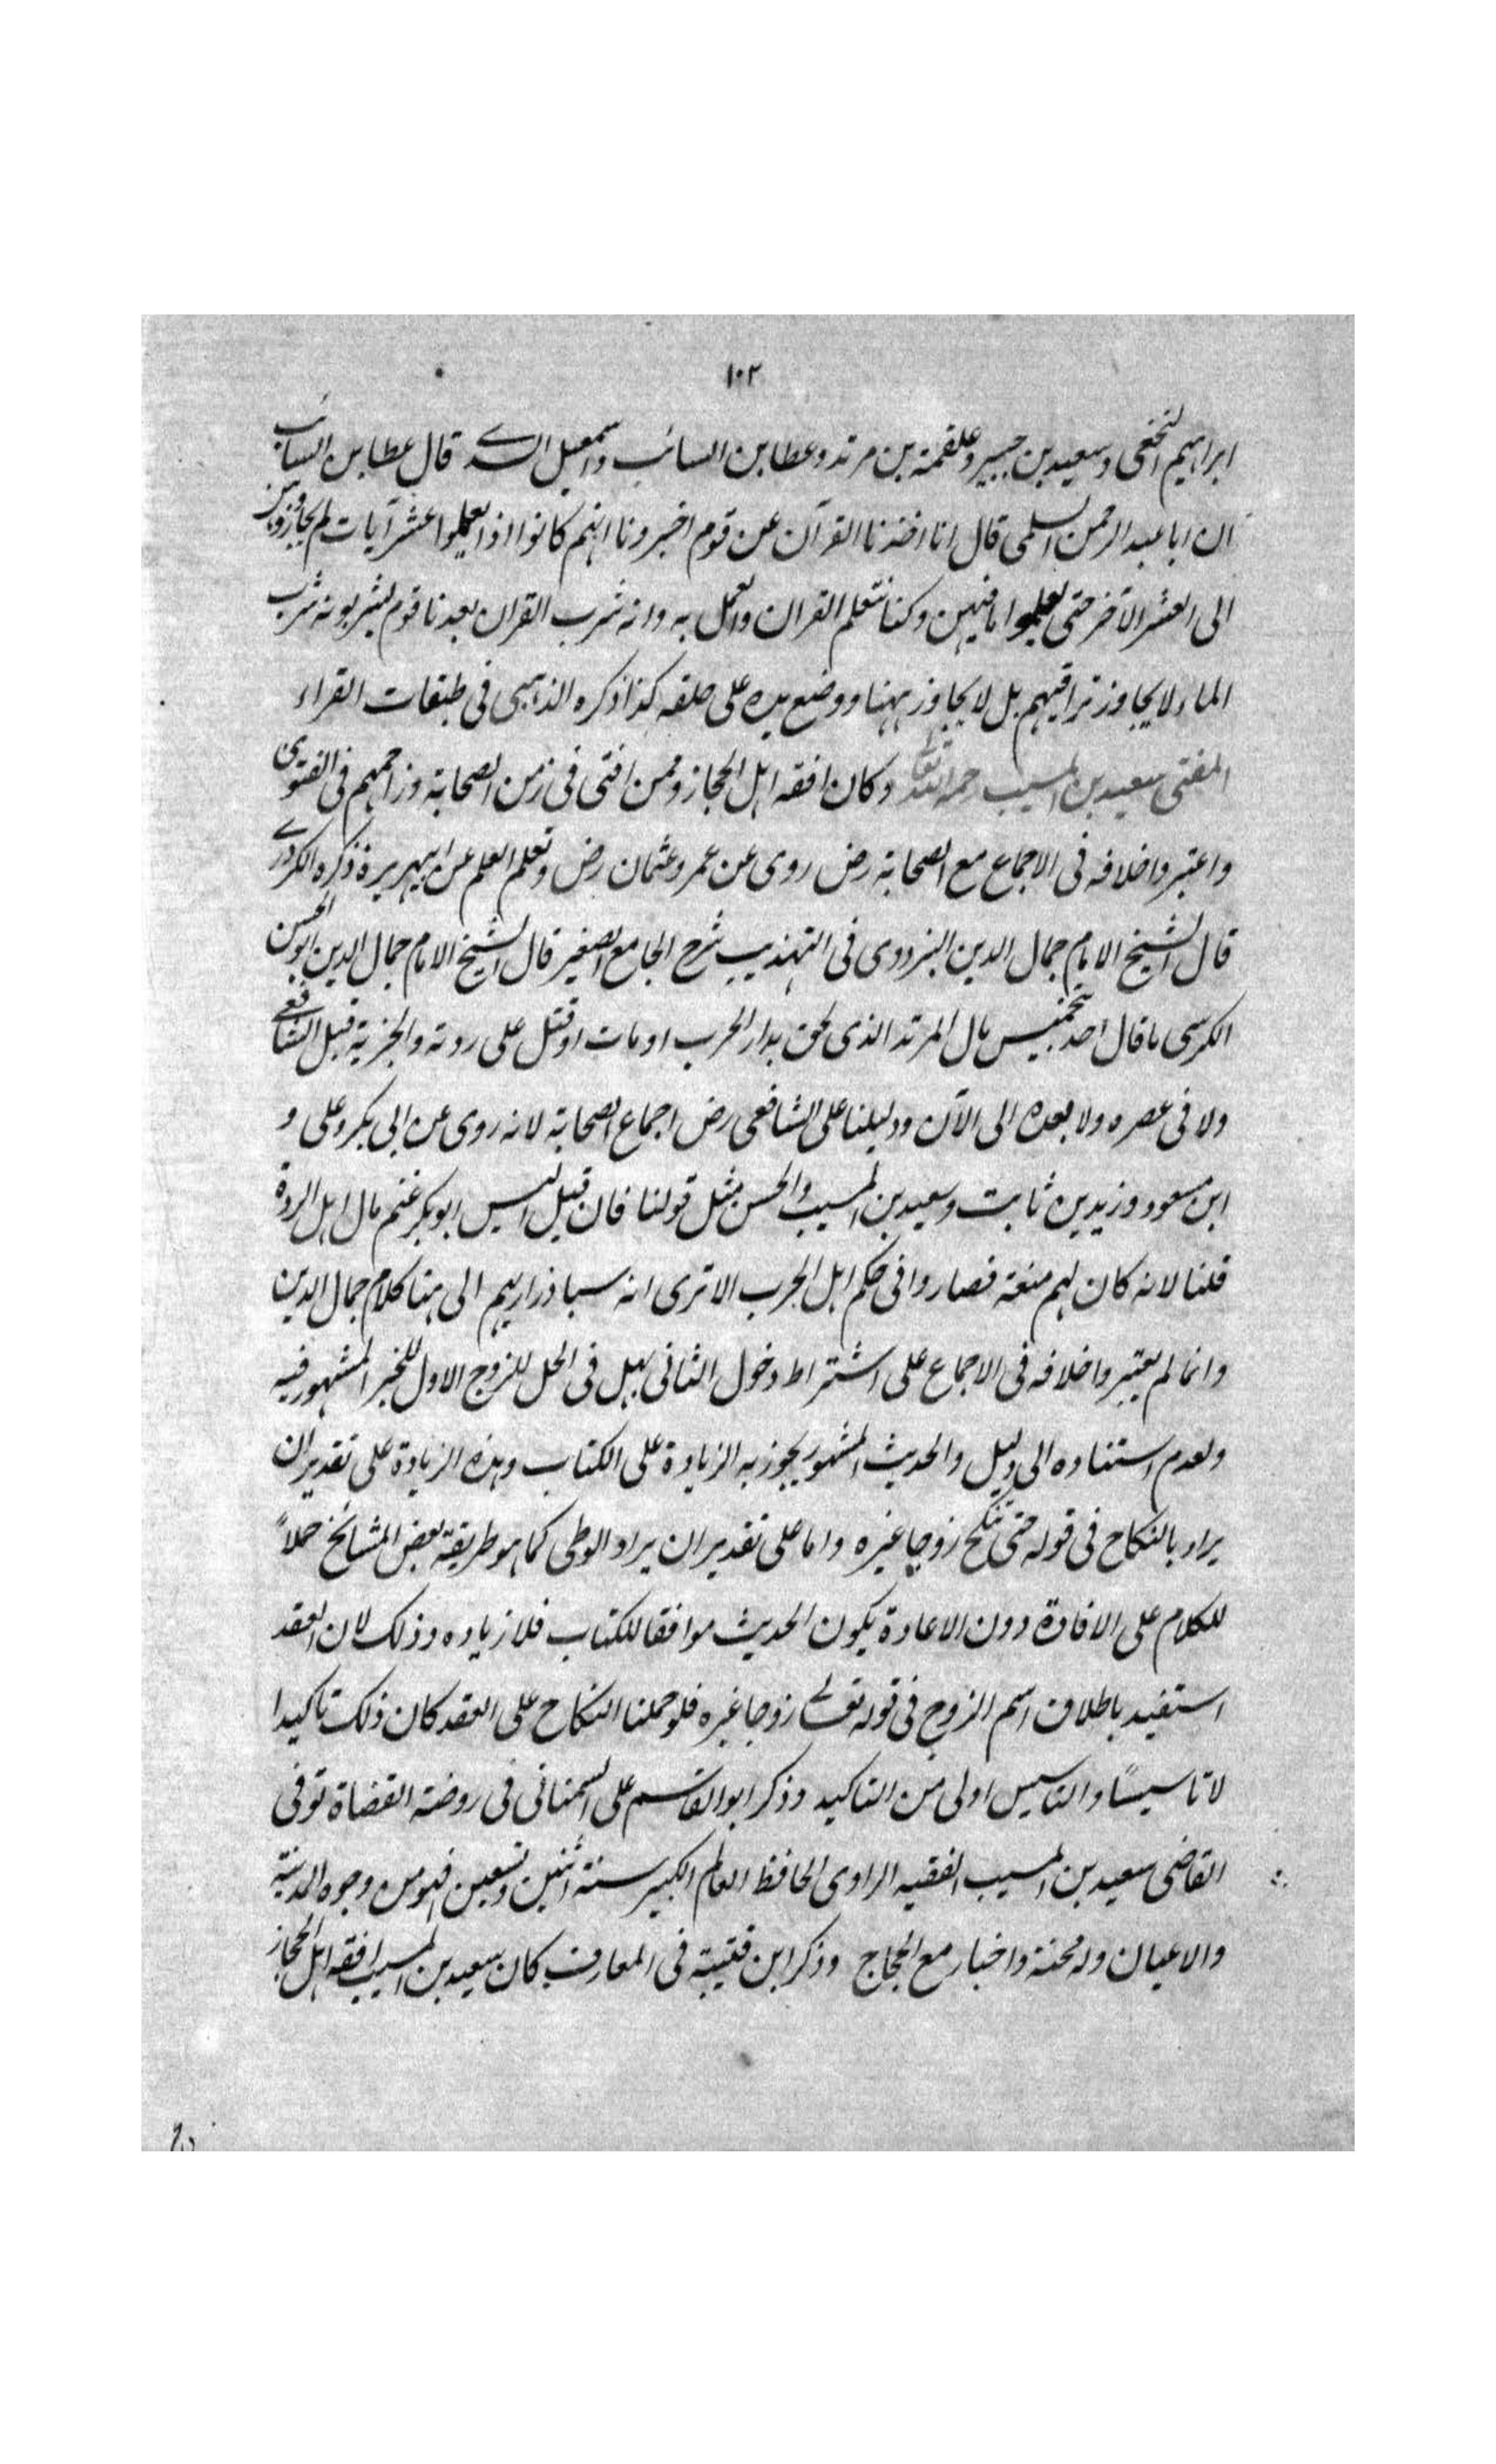 ١٠٢
ابراهيم النخعى وسعيد بن جبير وعلقمة بن مرثد وعطا بن السائب واسمعيل السدے قال عطا بن السائب
ان ابا عبد الرحمن السلمى قال انا اخذنا القرآن عن قوم اخبرونا انهم كانوا اذا تعلموا عشر آيات لم يجاوزوهن
الى العشر الآخر حتى يعلموا ما فيهن وكنا نتعلم القران والعمل به وانه شرب القران بعدنا قوم يشربونه شرب
الماء لا يجاوز تراقيهم بل لا يجاوز ههنا ووضع يده على حلقه كذا ذكره الذهبى فى طبقات القراء
المفتى سعيد بن المسيب رحمه الله تعالى وكان افقه اهل الحجاز وممن افتى فى زمن الصحابة وزاحمهم فى الفتوى
واعتبروا خلافه فى الاجماع مع الصحابة رض روى عن عمر وعثمان رض وتعلم العلم عن ابيهريرة ذكره الكردرے
قال الشيخ الامام جمال الدين البزدوى فى التهذيب شرح الجامع الصغير قال الشيخ الامام جمال الدين ابو الحسن
الكرسى ما قال احد بتخميس مال المرتد الذى لحق بدار الحرب او مات او قتل على ردته والجزية قبل الشافعے
ولا فى عصره ولا بعده الى الآن ودليلنا على الشافعى رض اجماع الصحابة لانه روى عن ابى بكر وعلى و
ابن مسعود وزيد بن ثابت وسعيد بن المسيب والحسن مثل قولنا فان قيل اليس ابو بكر غنم مال اهل الردة
قلنا لانه كان لهم منعة فصاروا فى حكم اهل الحرب الا ترى انه سبا ذراريهم الى هنا كلام جمال الدين
وانما لم يعتبروا خلافه فى الاجماع على اشتراط دخول الثانى بهل فى الحل للزوج الاول للخبر المشهور فيه
ولعدم استناده الى دليل والحديث المشهور يجوز به الزيادة على الكتاب وهذه الزيادة على تقدير ان
يراد بالنكاح فى قوله حتى تنكح زوجا غيره واما على تقدير ان يراد الوطى كما هو طريقة بعض المشائخ حملاً
للكلام على الافادة دون الاعادة يكون الحديث موافقا للكتاب فلا زياده وذلك لان العقد
استفيد باطلاق اسم الزوج فى قوله تعالے زوجا غيره فلو حملنا النكاح على العقد كان ذلك تاكيدا
لا تاسيسًا والتاسيس اولى من التاكيد وذكر ابو القاسم على السمنانى فى روضة القضاة توفى
القاضى سعيد بن المسيب الفقيه الراوى الحافظ العالم الكبير سنة اثنين وتسعين فهو من وجوه المدينة
والاعيان وله محنة واخبار مع الحجاج وذكر ابن قتيبة فى المعارف كان سعيد بن المسيب افقه اهل الحجاز